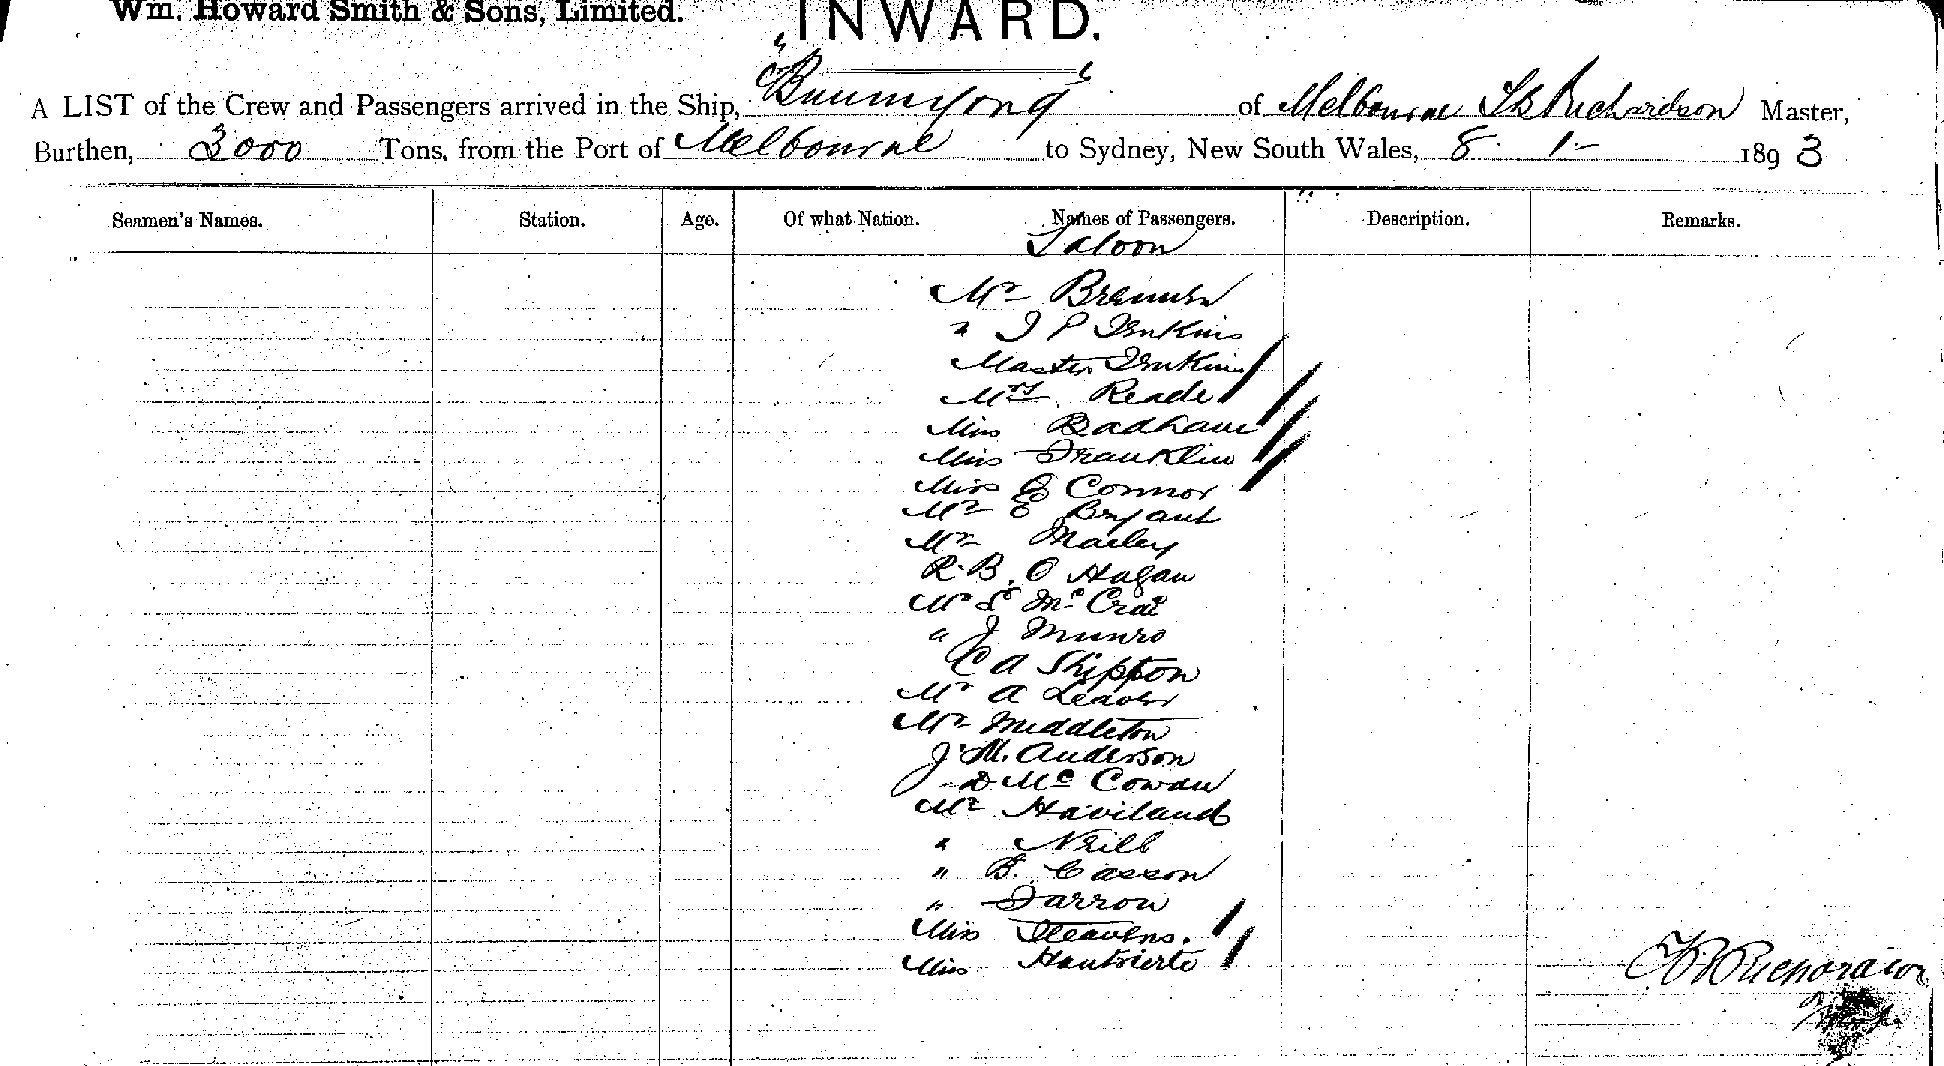 Wm. Howard Smith & Sons, Limited.
INWARD.
A LIST of the Crew and Passengers arrived in the Ship, "Buninyong" of Melbourne T B Richardson Master,
Burthen, 3000 Tons, from the Port of Melbourne to Sydney, New South Wales, 8. 1- 1893
Seamen's Names. Station. Age. Of what Nation. Names of Passengers. Description. Remarks.
Saloon
Mr Brennen
" J P Jenkins
Master Jenkins
Mrs. Reade
Miss Badham
Miss Franklin
Miss Connor
Mr E Bryant
Mr Marley
R. B. O Hagan
Mr Mc Crae
" J Munro
C A Shippton
Mr A Leader
Mr Middleton
J M. Anderson
D Mc Cowan
Mr Haviland
" Neill
" B. Casson
" Farron
Miss Steavens.
Miss
T B Richardson